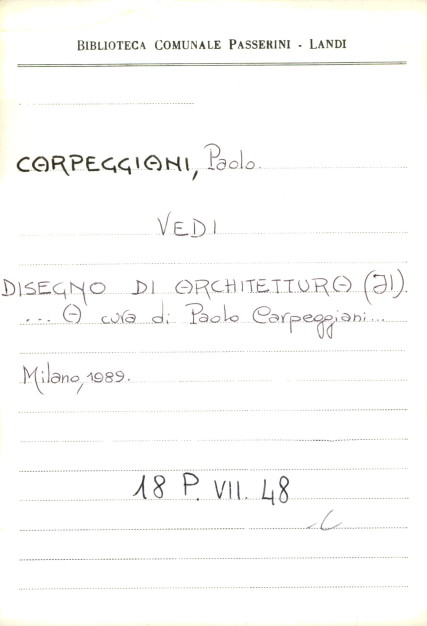 BIBLIOTECA COMUNALE PASSERINI - LANDI
CARPEGGIANI, Paolo.
VEDI
DISEGNO DI ARCHITETTURA (JI).
... A cura di Paolo Carpeggiani...
Milano, 1989.
18 P. VII. 48